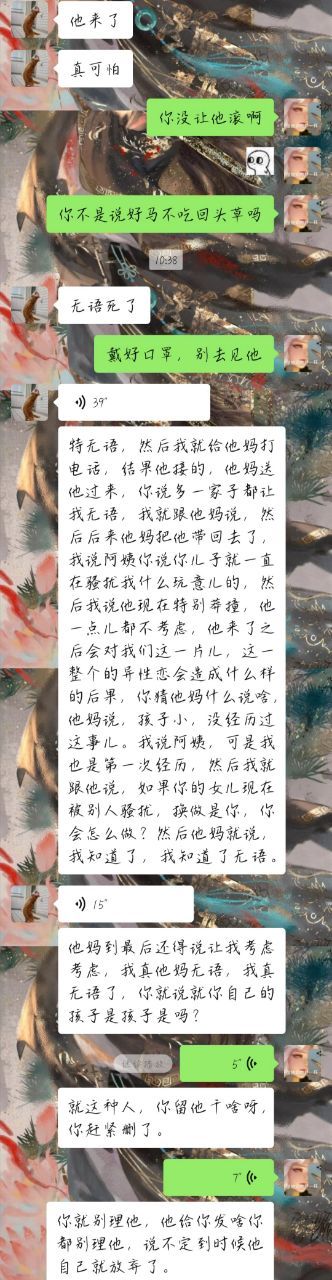 他来了
真可怕
你没让他滚啊
你不是说好马不吃回头草吗
10:38
无语死了
戴好口罩，别去见他
39"
特无语，然后我就给他妈打
电话，结果他接的，他妈送
他过来，你说多一家子都让
我无语，我就跟他妈说，然
后后来他妈把他带回去了，
我说阿姨你说你儿子就一直
在骚扰我什么玩意儿的，然
后我说他现在特别莽撞，他
一点儿都不考虑，他来了之
后会对我们这一片儿，这一
整个的异性恋会造成什么样
的后果，你猜他妈什么说啥，
他妈说，孩子小，没经历过
这事儿。我说阿姨，可是我
也是第一次经历，然后我就
跟他说，如果你的女儿现在
被别人骚扰，换做是你，你
会怎么做？然后他妈就说，
我知道了，我知道了无语。
15"
他妈到最后还得说让我考虑
考虑，我真他妈无语，我真
无语了，你就说就你自己的
孩子是孩子是吗？
5"
就这种人，你留他干啥呀，
你赶紧删了。
7"
你就别理他，他给你发啥你
都别理他，说不定到时候他
自己就放弃了。